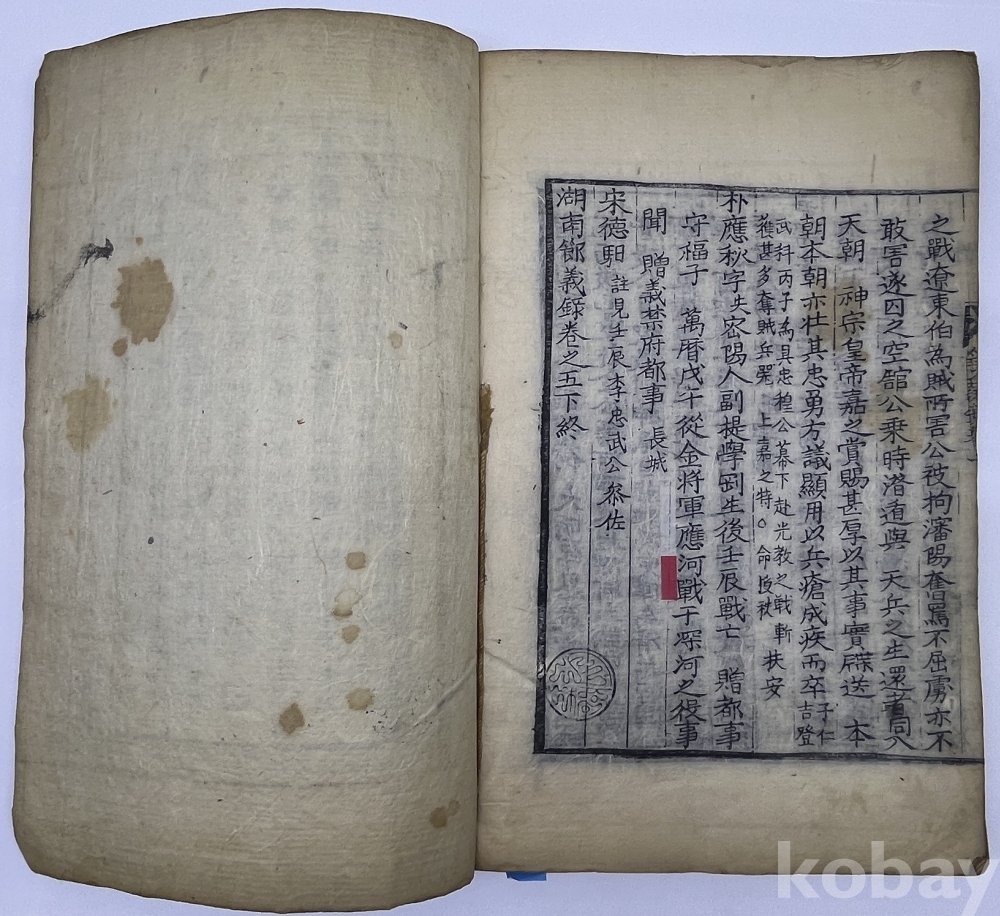 之戰遼東伯為賊所害公被拘瀋陽奮罵不屈虜亦不
敢害遂囚之空舘公乗時潛逭與 天兵之生還者同入
天朝 神宗皇帝嘉之賞賜甚厚以其事實驛送 本
朝本朝亦壮其忠勇方議顯用以兵瘡成疾而卒子仁吉登
武科丙子為具忠穆公幕下赴光教之戰斬
獲甚多奪賊兵器 上嘉之特○命 扶安
朴應秋字失密陽人副提學剛生後壬辰戰亡 贈都事
守福子 萬曆戊午從金將軍應河戰于深河之役事
聞 贈義禁府都事 長城
宋德馹 註見壬辰李忠武公叅佐
湖南節義錄卷之五下終
kobay